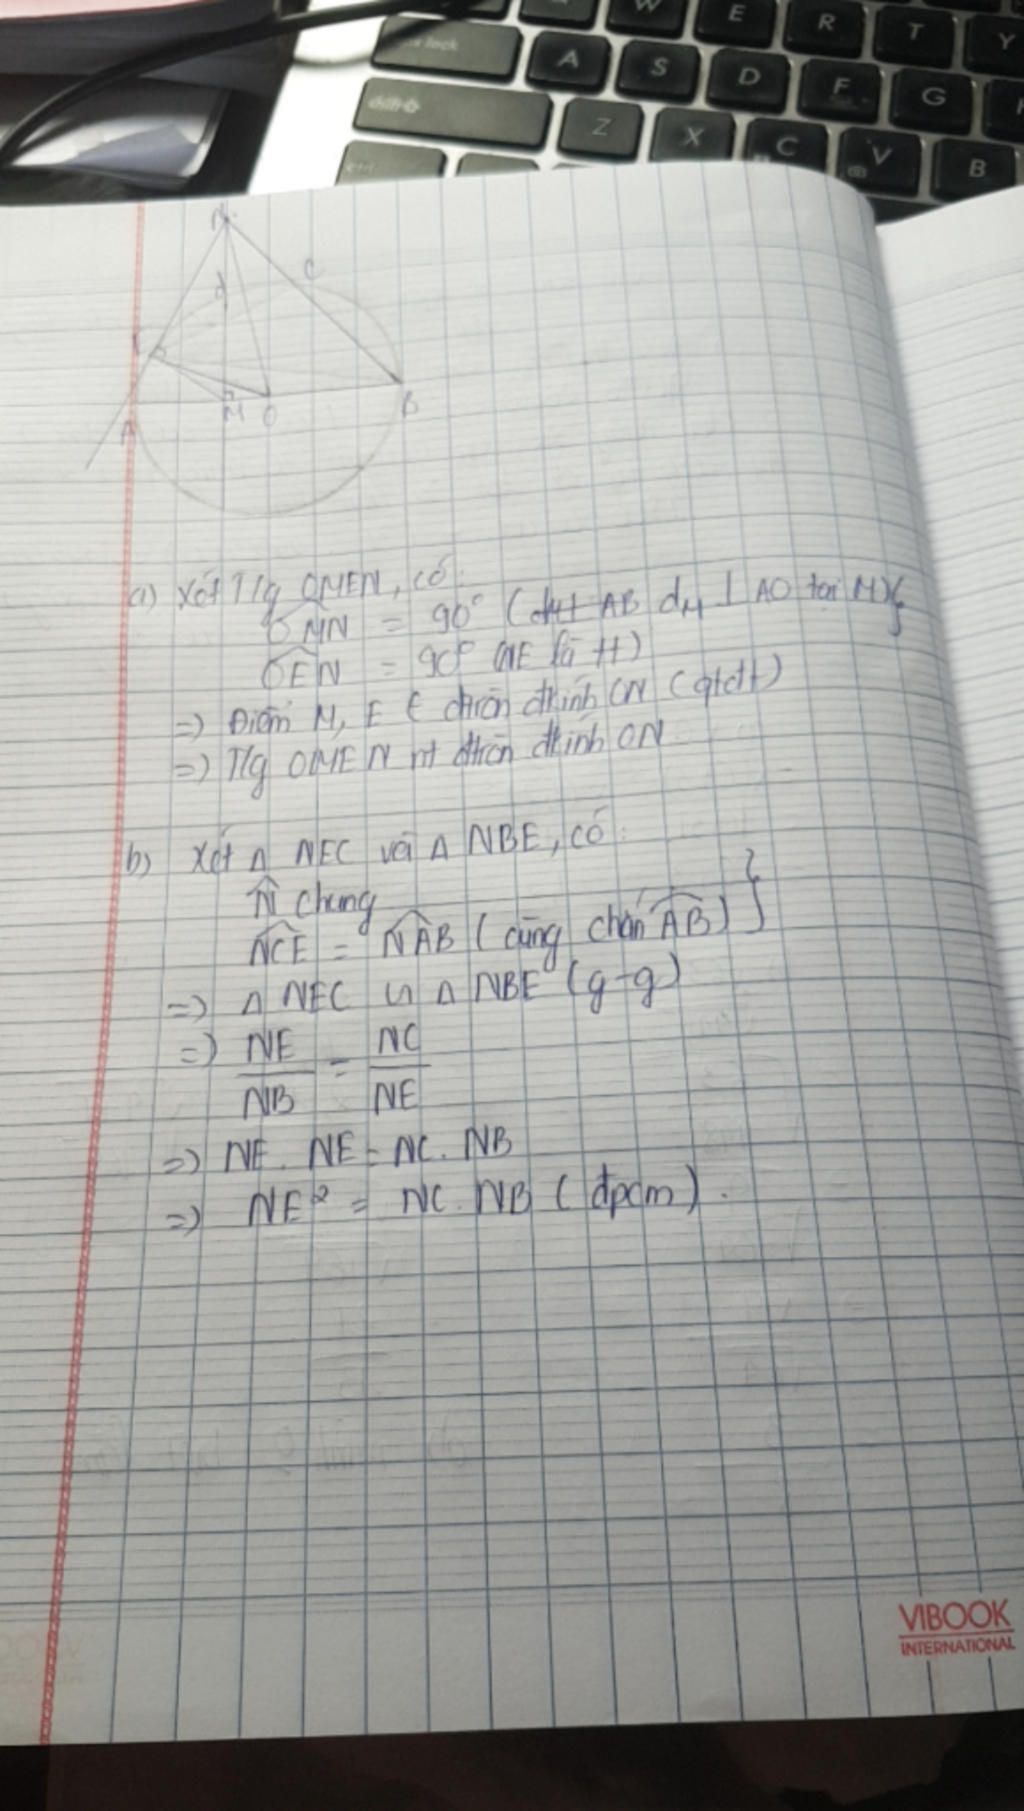 W E R T Y
lock A S D F G
shift Z X C V B
N
d
C
E
A M O B
a) Xét T/g OMEN, có:
OMN = 90° (đtđt AB dM ⊥ AO tại M)}
OEN = 90° (NE là tt)
=) Điểm M, E ∈ đtròn đkính ON (qtđt)
=) T/g OMEN nt đtròn đkính ON
b) Xét Δ NEC và Δ NBE, có:
N̂ chung
NCE = NAB (cùng chắn AB) }
=) Δ NEC ∽ Δ NBE (g-g)
=) NE/NB = NC/NE
=) NE. NE = NC. NB
=) NE² = NC. NB (đpcm).
VIBOOK
INTERNATIONAL